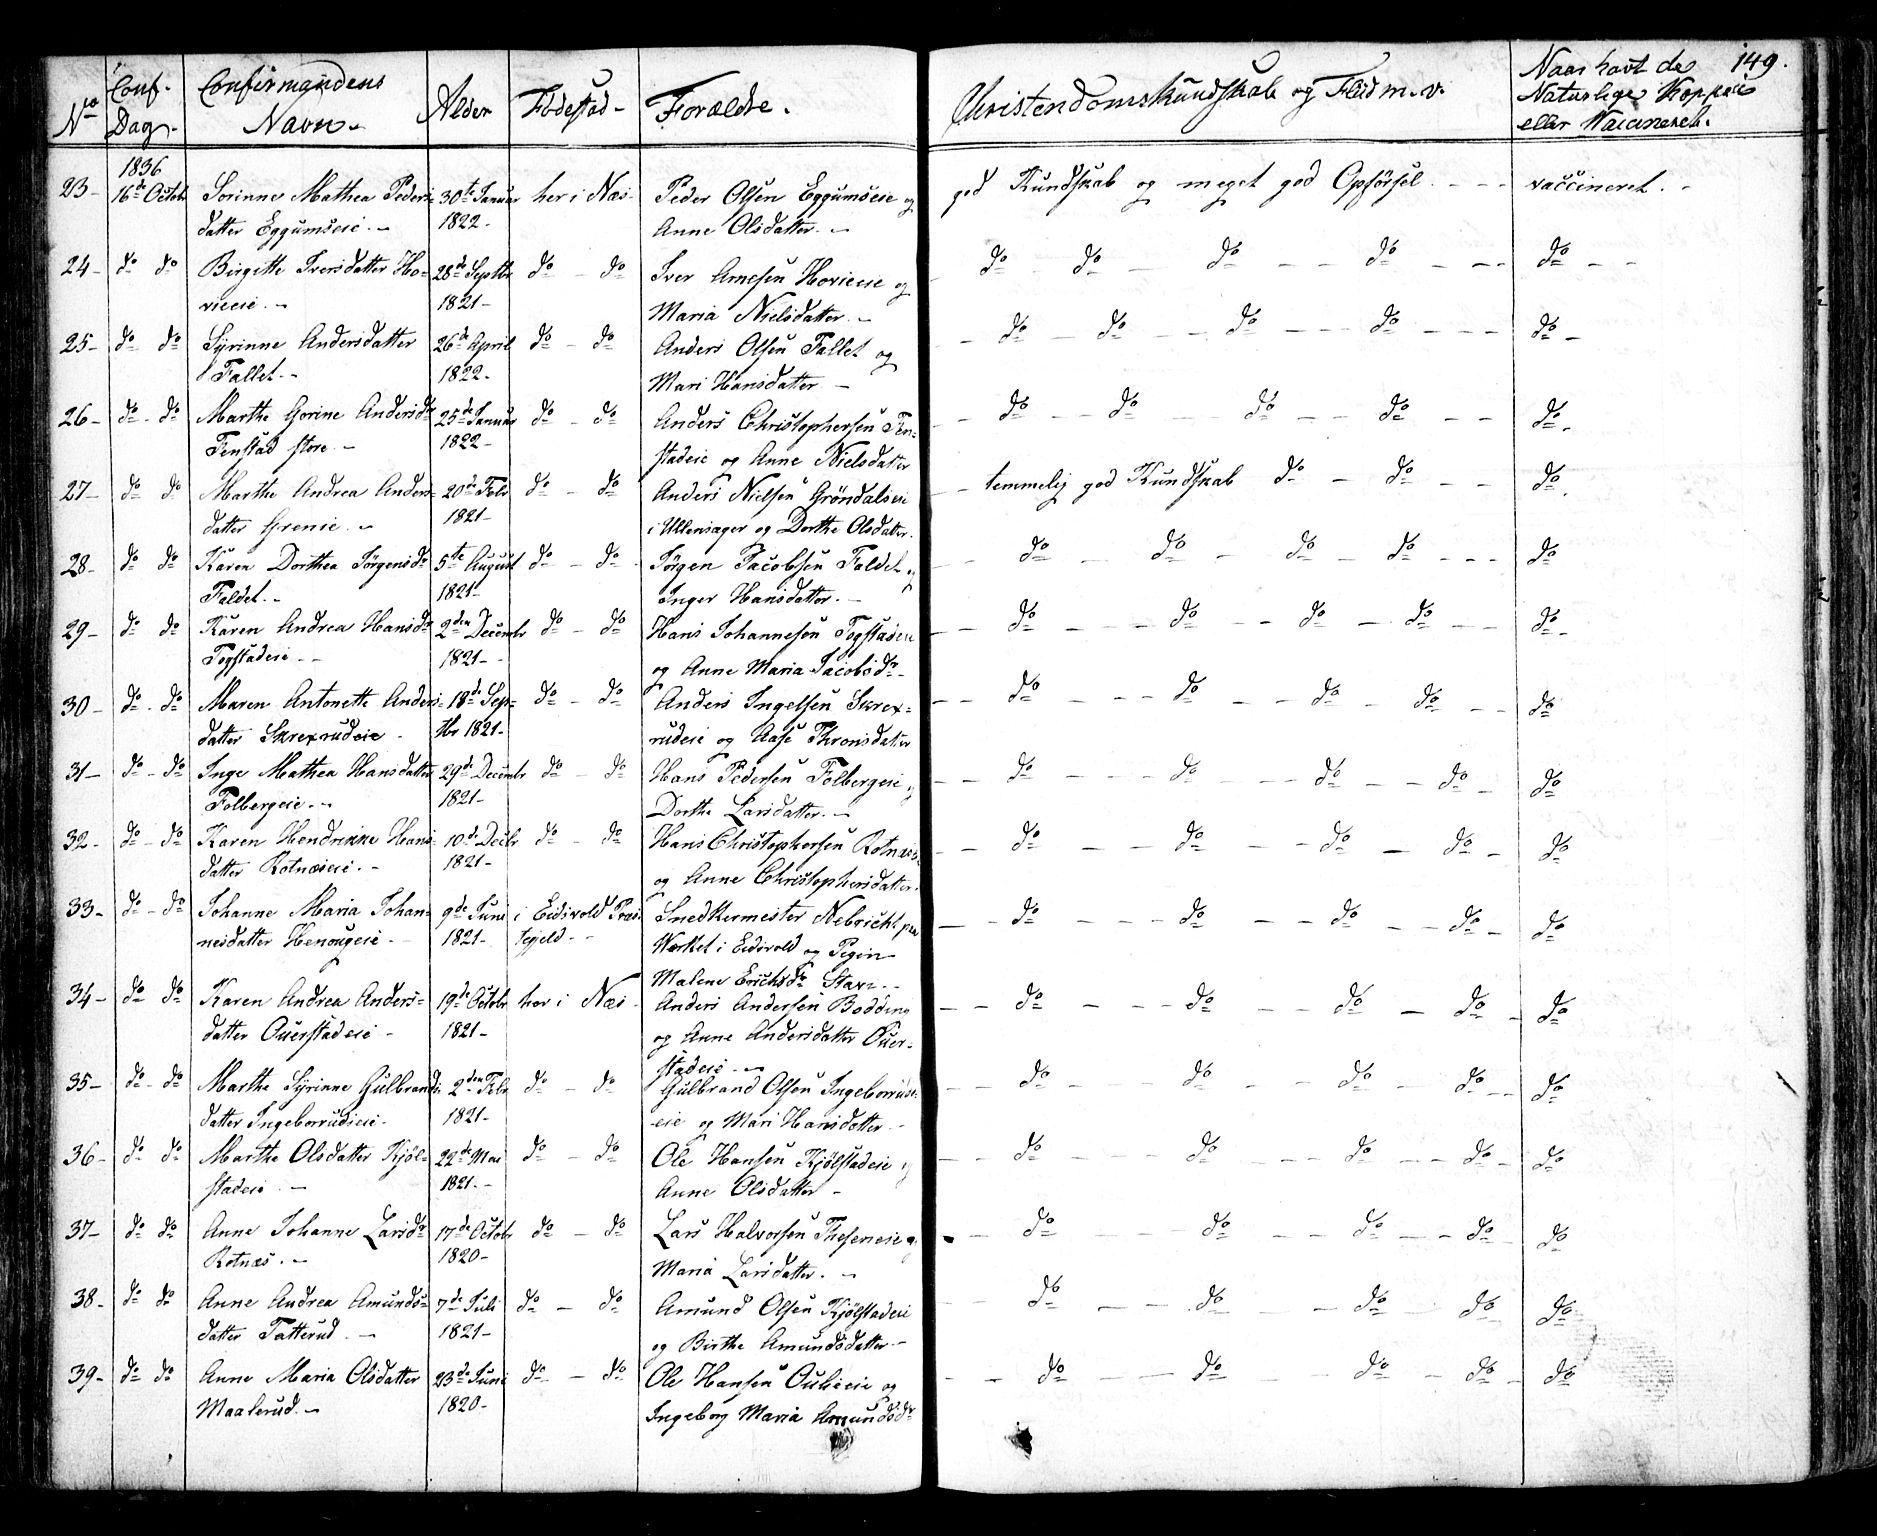 149.
No
Conf. Dag.
Confirmandens Navn.
Alder
Födestæd
Forældre.
Christendomskundskab og Flid m. v.
Naar havt de Naturlige Kopper eller Vaccineret.
1836
23 - 16de Octob Sorinne Mathea Peders- 30te Januar her i Næs- Peder Olsen Eggumseie og god Kundskab og meget god Opførsel. - - - vaccineret. -
datter Eggumseie. - 1822 - Anne Olsdatter. -
24 - do do Birgitte Iversdatter Ho- 28de Septbr do - do Iver Arnesen Hovieeie og do do - do - - do - - - do - -
vieeie. - 1821 - Maria Nielsdatter. -
25 - do do Syrinne Andersdatter 26de April do - do Anders Olsen Fallet og - do - do - - do - - - do - - - do -
Fallet. - 1822 - Mari Hansdatter -
26 - do - do Marthe Gorine Andersdr 25de Januar do do Anders Christophersen Fen- - do - - do do - - do - - do -
Fenstad store. - 1822 - stadeie og Anne Nielsdatter
27 - do do Marthe Andrea Anders- 20de Febr do - do Anders Nielsen Gröndalseie - temmelig god Kundskab do - do - - do.
datter Grenie. - 1821 - i Ullensager og Dorthe Olsdatter.
28 - do do Karen Dorthea Jørgensdr 5te August do - do Jørgen Jacobsen Faldet og - - do - do - do - do - - - do
Faldet. - 1821 - Inger Hansdatter. -
29 - do do Karen Andrea Hansdr 2den Decembr do - do Hans Johannesen Fogstadeie - - do - - - do - - do - do - - do -
Fogstadeie - - 1821 - - og Anne Maria Jacobsdr -
30 - do - do Maren Antonette Anders- 18de Sep- do - do Anders Ingelsen Skrex- - - do - - - do - do - do - - do
datter Skrexrudeie - tbr 1821 - rudeie og Aase Thronsdatter
31 - do - do Inge Mathea Hansdatter 29de Decembr do - do Hans Pedersen Folbergeie og - do - - - do - - - do - do - do
Folbergeie. - 1821 - Dorthe Larsdatter. -
32 - do - do Karen Hendrikke Hans- 10de Decbr do - do Hans Christophersen Rotnæs - - do - - do - - do - do - do
datter Rotnæseie. - 1821 - og Anne Christophersdatter.
33 - do - do Johanne Maria Johan- 9de Juni i Eidsvold Præs- Snedkermester Nebricht paa - do - - do - - do - do - do
nesdatter Henougeie - 1821 - tegjeld - Værket i Eidsvold og Pigen
Malene Erichsdr Stax -
34 - do do Karen Andrea Anders- 19de Octobr her i Næs - Anders Andersen Bodding - - do - - do - - do - do - do
datter Ouerstadeie - 1821 - og Anne Andersdatter Ouer-
stadeie - -
35 - do - do Marthe Syrinne Gulbrands- 2den Febr do - do Gulbrand Olsen Ingeborruds- - - do - do - - do - do - - do
datter Ingeborrudseie. 1821 - eie og Mari Hansdatter -
36 - do do Marthe Olsdatter Kjøl- 22de Mai do - do Ole Hansen Kjølstadeie og - - do - - do - - do - - do - do
stadeie - 1821. - Anne Olsdatter -
37 - do do Anne Johanne Larsdr 17de Octobr do - do Lars Halvorsen Theseneie og - do - - - do - - do - - do - do
Rotnæs. - 1820 - Maria Larsdatter. -
38 - do do Anne Andrea Amunds- 7de Juli do - do Amund Olsen Kjølstadeie - do - - - do - - do - do - do
datter Tatterud - 1821 - og Birthe Amundsdatter -
39 - do do Anne Maria Olsdatter 23de Juni do - do Ole Hansen Oulieeie og - - do - - - do - do - do - do
Maalerud. - 1820 - Ingeborg Maria Amundsdr